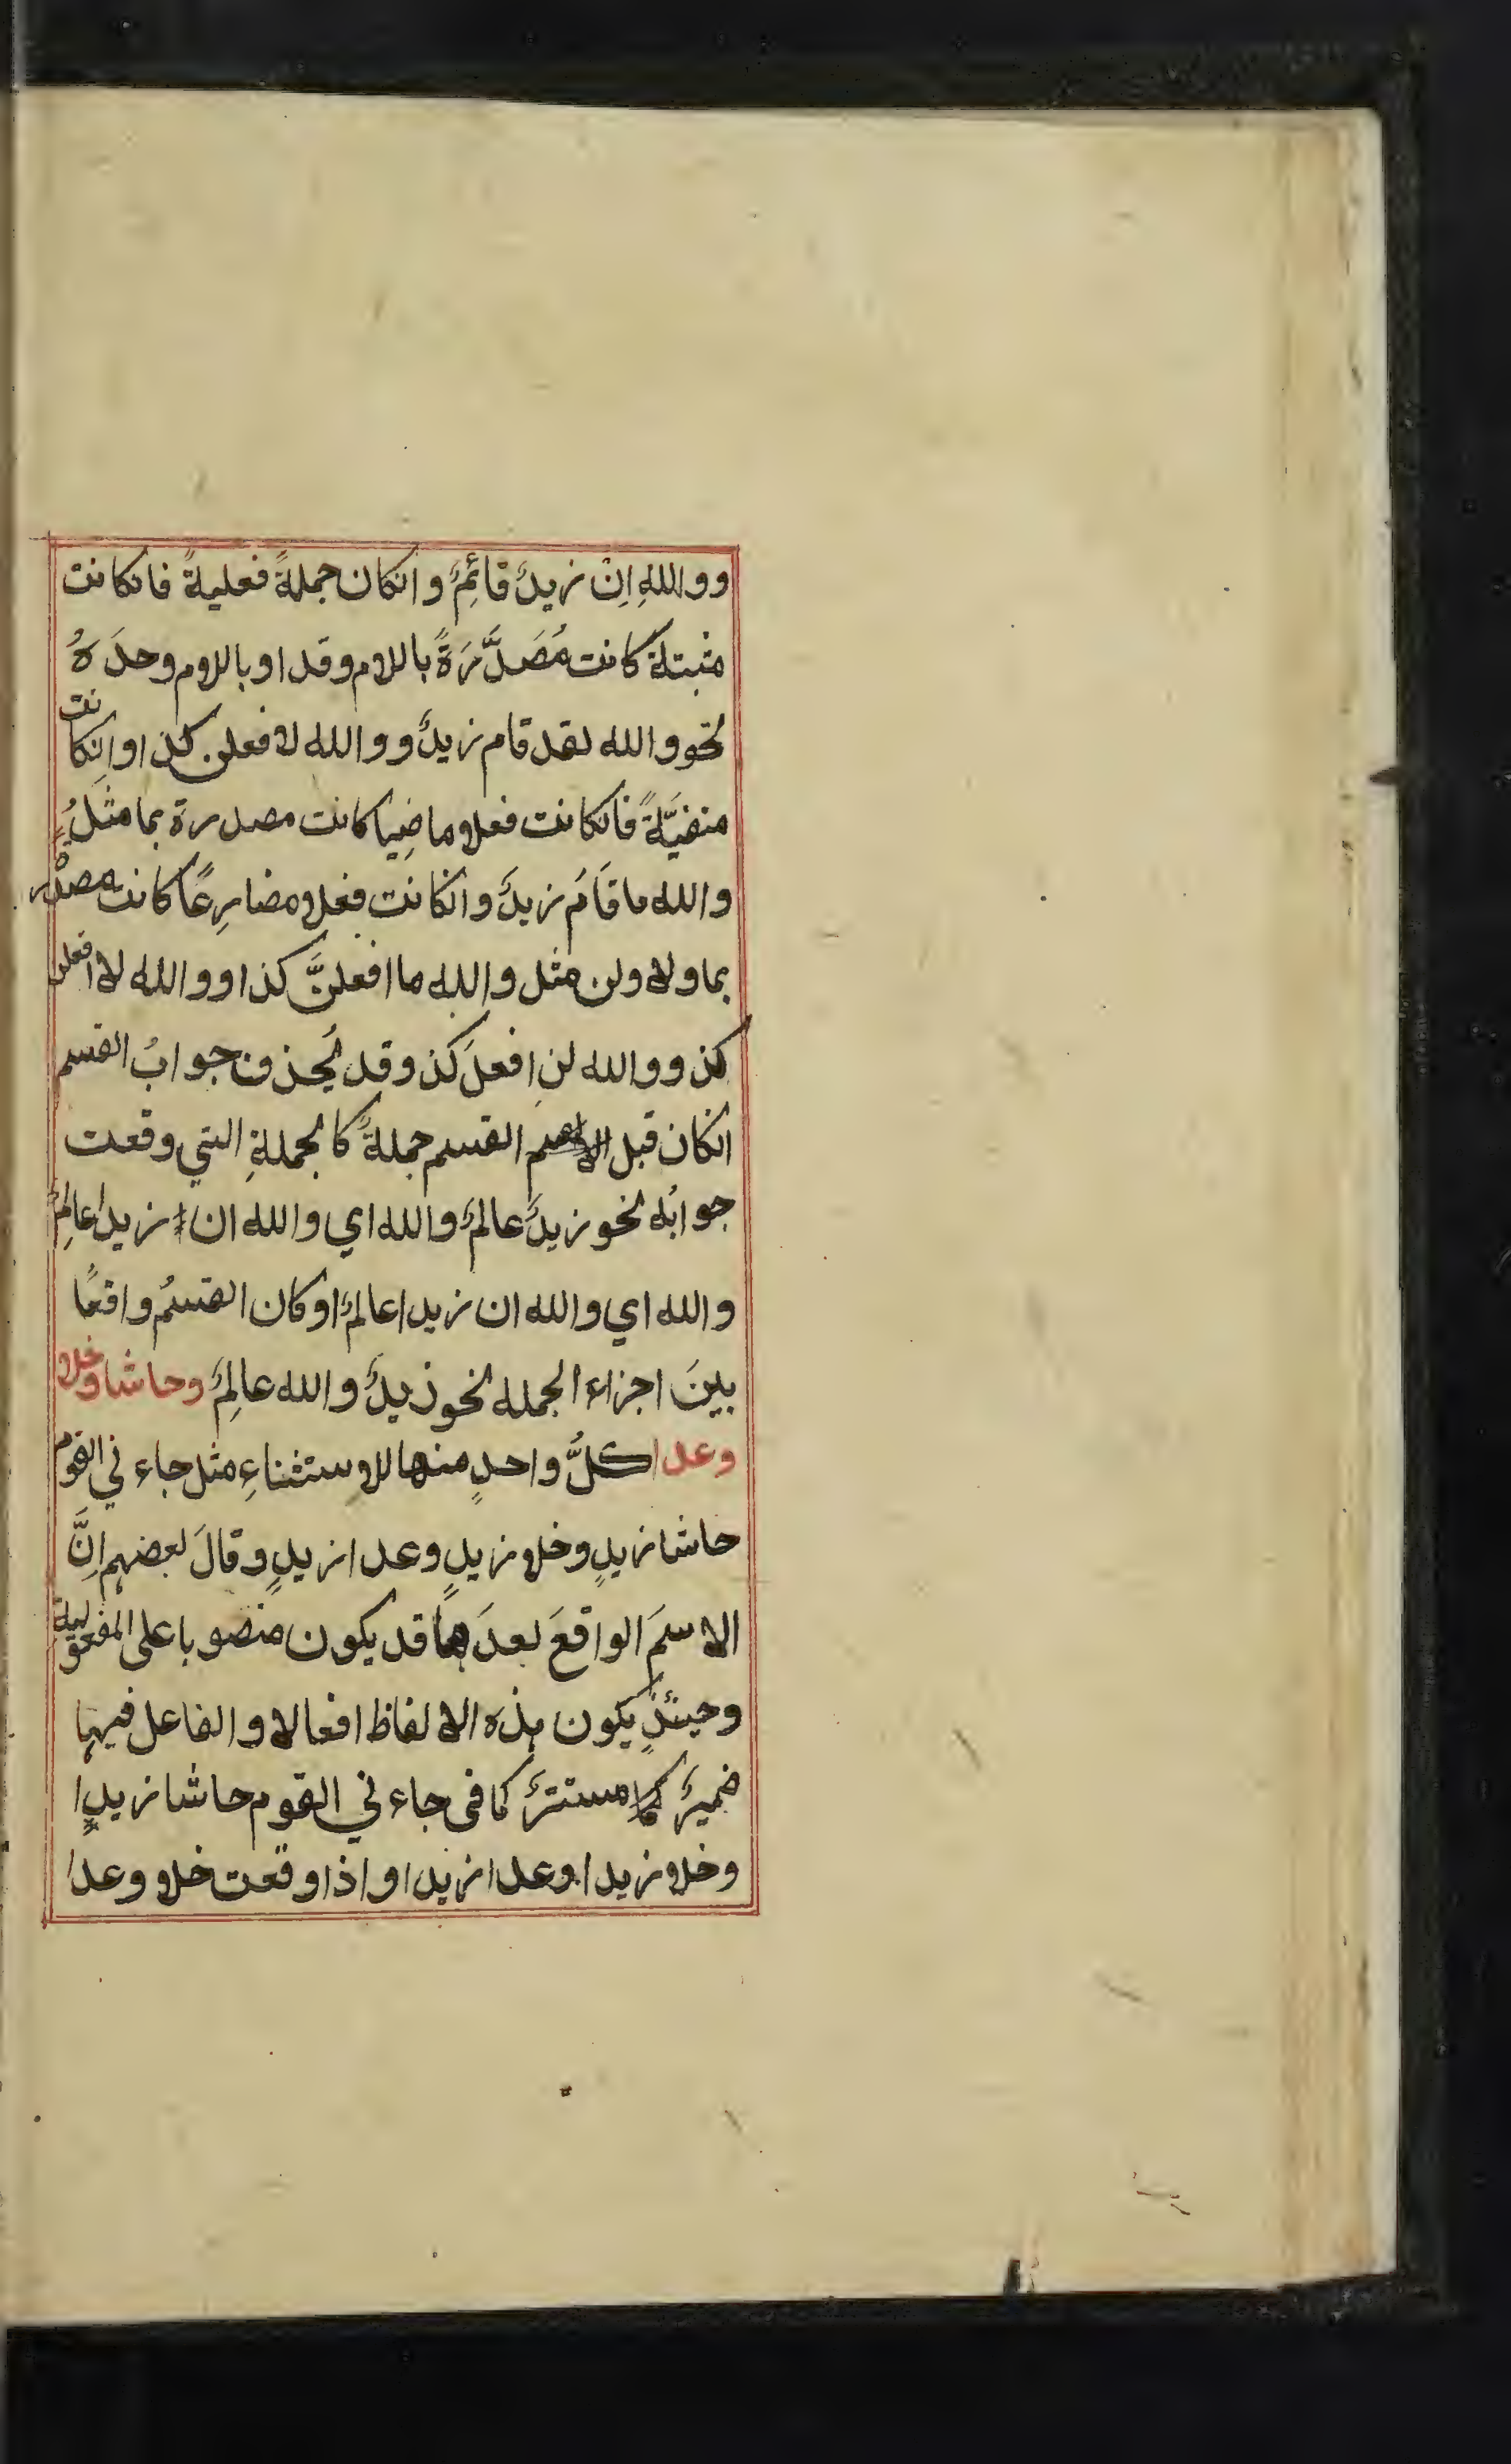 ووالله اِنْ زيدٌ قائِمٌ وانكان جملةً فعليةً فانكانت
مثبتلة كانت مُصَدَّرَةً باللام وقد او باللام وحدَهُ
نحو والله لقد قام زيدٌ ووالله لافعلن كذا وانكانت
منفيَّةً فانكانت فعلا ماضِيا كانت مصدرة بما مثلُ
والله ما قَامَ زيدٌ وانكانت فعلا مضارِعًا كانت مصدْر
بما ولا ولن مثل والله ما افعلنَّ كذا ووالله لا افعلن
كذ ووالله لن افعلَ كذ وقد يُحذف جوابُ القسم
انكان قبل القسم جملةً كالجملةِ التي وقعت
جوابُه نحو زيدٌ عالمٌ والله اي والله ان زيدا عالِمٌ
والله اي والله ان زيدا عالمٌ او كان القسمُ واقعًا
بينَ اجزاء الجمله نحو زيدٌ والله عالِمٌ وحاشا وخلا
وعدا كلُّ واحدٍ منها للاستثناءِ مثل جاءني القوم
حاشا زيدٍ وخلا زيدٍ وعدا زيدٍ وقالَ بعضهم اِنَّ
الاسمَ الواقعَ بعدَها قد يكون منصوبا على المفعولية
وحينئذٍ يكون هذه الالفاظ افعالا والفاعل فيها
ضميرٌ مستترٌ كما في جاءني القوم حاشا زيدٍا
وخلا زيدا وعدا زيدا واذا وقعت خلا وعدا